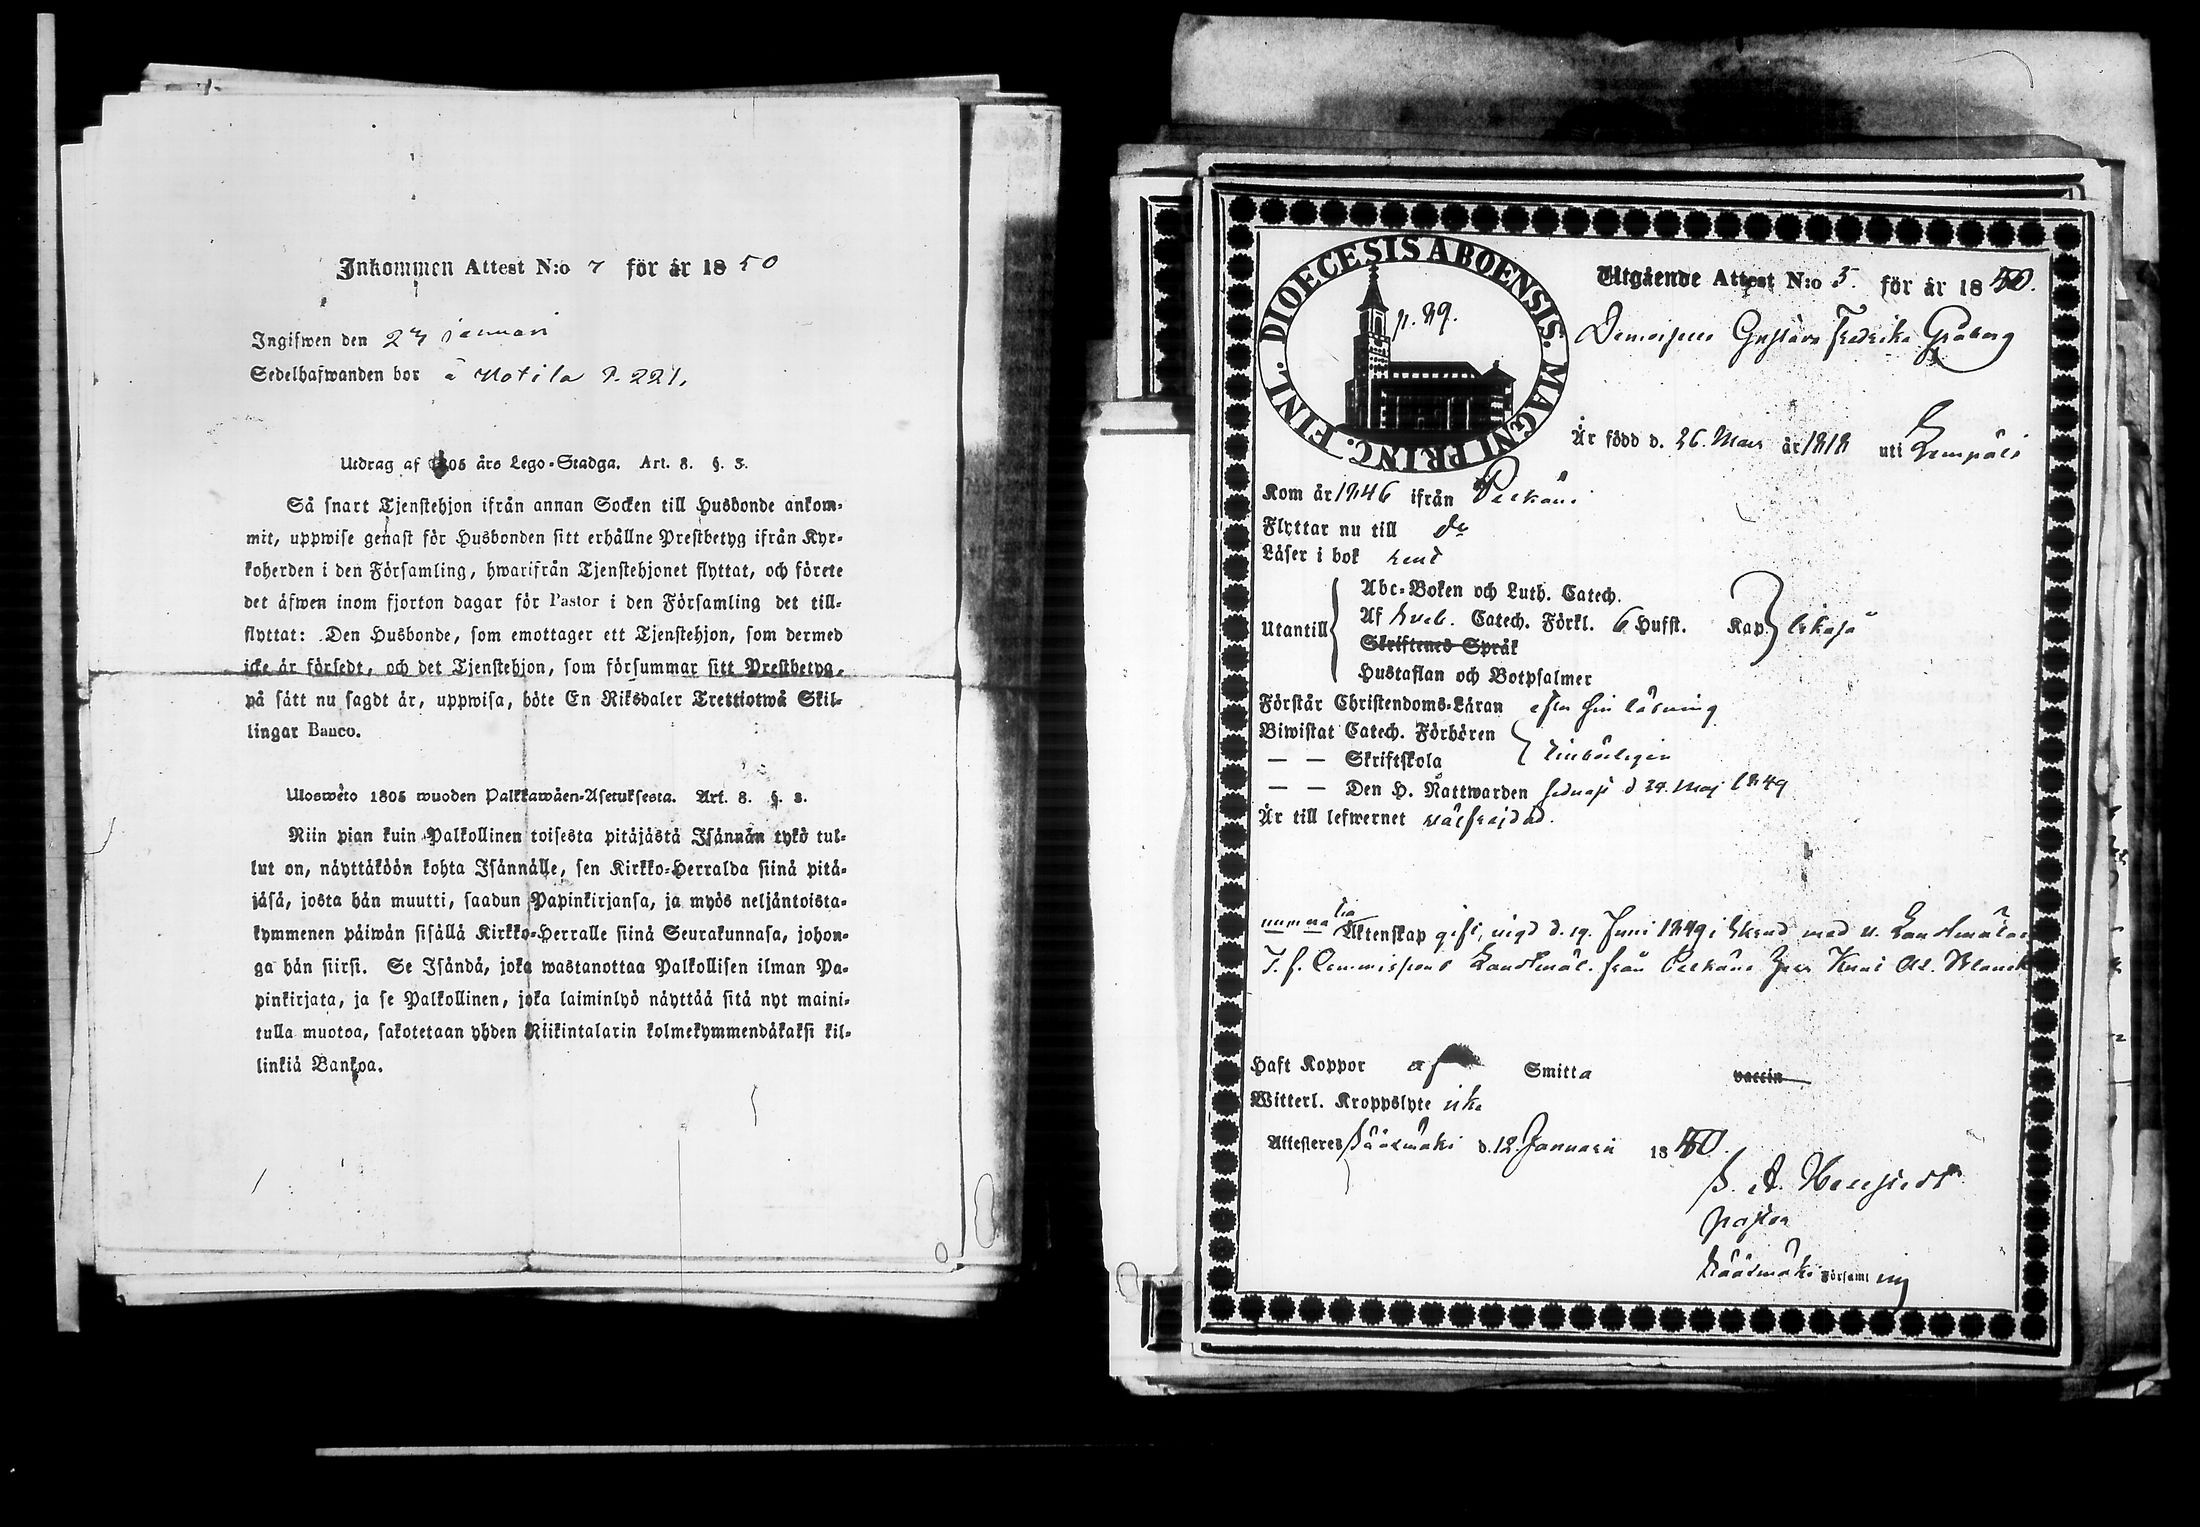 Inkommen Attest N:o 7 för år 1850
Ingifwen den 24 januari
Sedelhafwanden bor å Kotila P. 221.
Utdrag af 1805 års Lego-Stadga. Art. 8. §. 3.
Så snart Tjenstehjon ifrån annan Socken till Husbonde ankom-
mit, uppwise genast för Husbonden sitt erhållne Prestbetyg ifrån Kyr-
koherden i den Församling, hwarifrån Tjenstehjonet flyttat, och förete
det äfwen inom fjorton dagar för Pastor i den Församling det till-
flyttat: Den Husbonde, som emottager ett Tjenstehjon, som dermed
icke är försedt, och det Tjenstehjon, som försummar sitt Prestbetyg,
på sått nu sagdt är, uppwisa, böte En Riksdaler Trettiotwå Skil-
lingar Banco.
Uloswèto 1805 wuoden Palkkawäen-Asetuksesta. Art. 8. §. 3.
Niin pian kuin Palkollinen toisesta pitäjästä Isännän tykö tul-
lut on, näyttäköön kohta Isännälle, sen Kirkko-Herralda siinä pitä-
jäsä, josta hän muutti, saadun Papinkirjansa, ja myös neljäntoista-
kymmenen päiwän sisällä Kirkko-Herralle siinä Seurakunnasa, johon-
ga hän siirsi. Se Isändä, joka wastanottaa Palkollisen ilman Pa-
pinkirjata, ja se Palkollinen, joka laiminlyö näyttää sitä nyt maini-
tulla muotoa, sakotetaan yhden Riikintalarin kolmekymmendäkaksi kil-
linkiä Bankoa.
DIOECESIS ABOENSIS. MAGNI PRINC. FINL.
p. 39.
Utgående Attest N:o 5. för år 1850.
Demoisellen Gustava Fredrika Gråberg
Är född d. 26. Mars år 1818 uti Lempälä
Kom år 1846 ifrån Pelkäne
Flyttar nu till do
Läser i bok rent
Utantill
Abc-Boken och Luth. Catech.
Af Sveb. Catech. Förkl. 6 Hufst. Kap. likaså
Skriftenes Språk
Hustaflan och Botpsalmer
Förstår Christendoms-Läran efter sin läsning
Biwistat Catech. Förhören
— — Skriftskola
— — Den H. Nattwarden sednast d 27. Maj 1849
Är till lefwernet wälfrejdad.
Äktenskap gift, vigd d. 19. Juni 1849 i med v. Landtmätar
T. f. Commissions Landtmät. från Pelkäne Herr Knut Ad. Blanck
Haft Koppor af Smitta vaccin
Witterl. Kroppslyte icke
Attesteres Sääxmäki d. 12 Januarii 1850.
pastor
Sääxmäki Församl ing